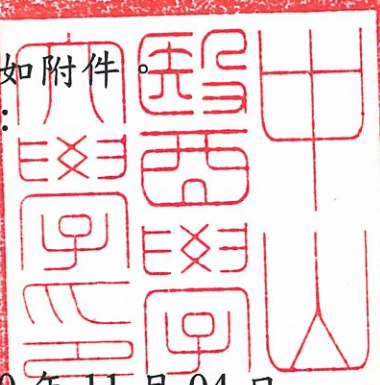 如附件。
:
中山
醫學
大學印
年 11 月 04 日